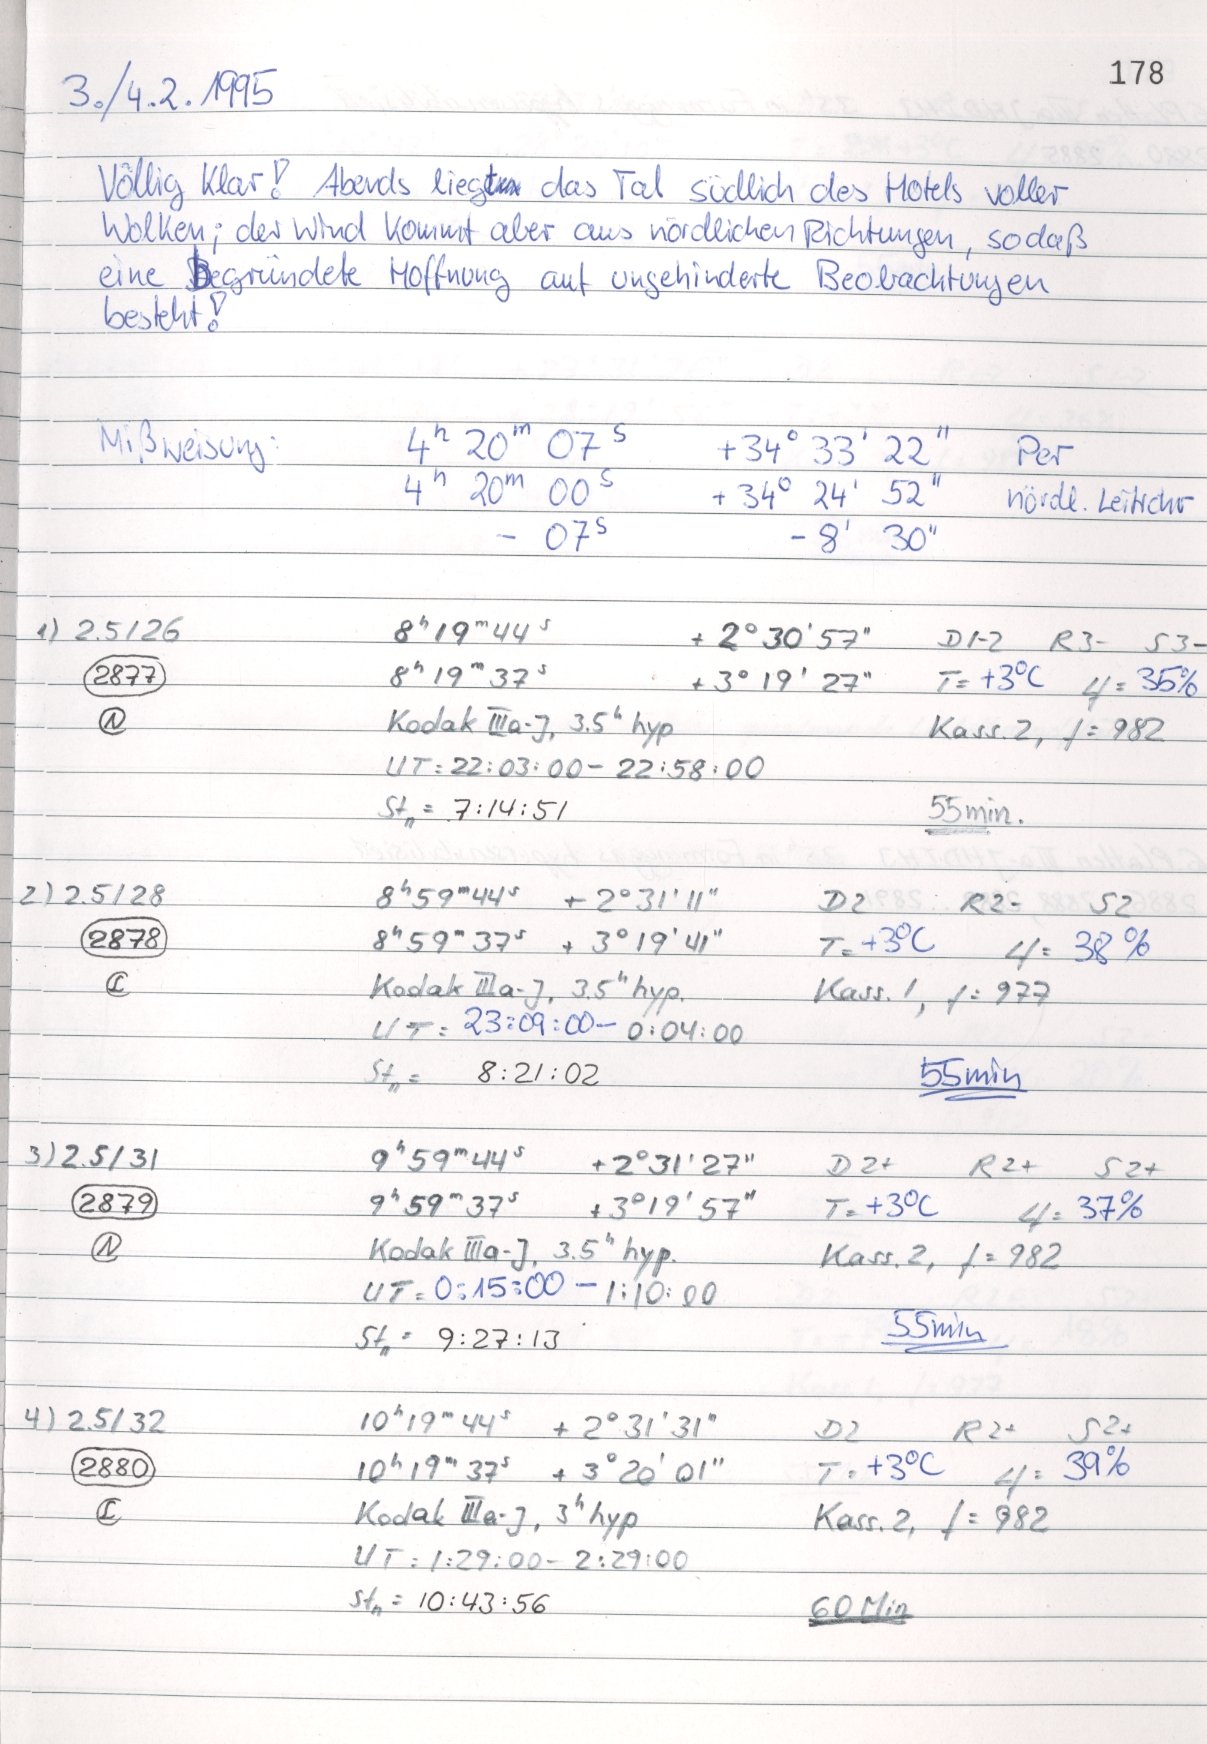 178
3./4.2.1995
Völlig klar! Abends liegt das Tal südlich des Hotels voller
Wolken; der Wind kommt aber aus nördlichen Richtungen, sodaß
eine Begründete Hoffnung auf ungehinderte Beobachtungen
besteht!
Mißweisung: 4h 20m 07s +34° 33' 22" Per
4h 20m 00s +34° 24' 52" nördl. Leitschr
- 07s -8' 30"
1) 2.5/26 8h19m44s +2°30'57" D1-2 R3- S3-
2877 8h19m37s +3°19'27" T= +3°C φ= 35%
N Kodak IIIa-J, 3.5h hyp Kass. 2, f= 982
UT=22:03:00-22:58:00
Stn= 7:14:51 55min.
2) 2.5/28 8h59m44s +2°31'11" D2 R2- S2
2878 8h59m37s +3°19'41" T= +3°C φ= 38%
Kodak IIIa-J, 3.5h hyp. Kass. 1, f= 977
UT= 23:09:00-0:04:00
Stn= 8:21:02 55min
3) 2.5/31 9h59m44s +2°31'27" D2+ R2+ S2+
2879 9h59m37s +3°19'57" T= +3°C φ= 37%
N Kodak IIIa-J, 3.5h hyp. Kass. 2, f= 982
UT= 0:15:00-1:10:00
Stn= 9:27:13 55min
4) 2.5/32 10h19m44s +2°31'31" D2 R2+ S2+
2880 10h19m37s +3°20'01" T= +3°C φ= 39%
Kodak IIIa-J, 3h hyp Kass. 2, f= 982
UT= 1:29:00-2:29:00
Stn= 10:43:56 60 Min